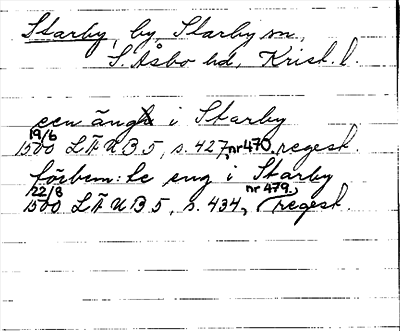 Starby, by, Starby sn.,
S. Åsbo hd, Krist. l.
een äng i Starby
19/6
1500 LÄUB 5, s. 427, nr 470. regest.
förbem:te eng i Starby
22/8 nr 479.,
1500 LÄUB 5, s. 434, regest.